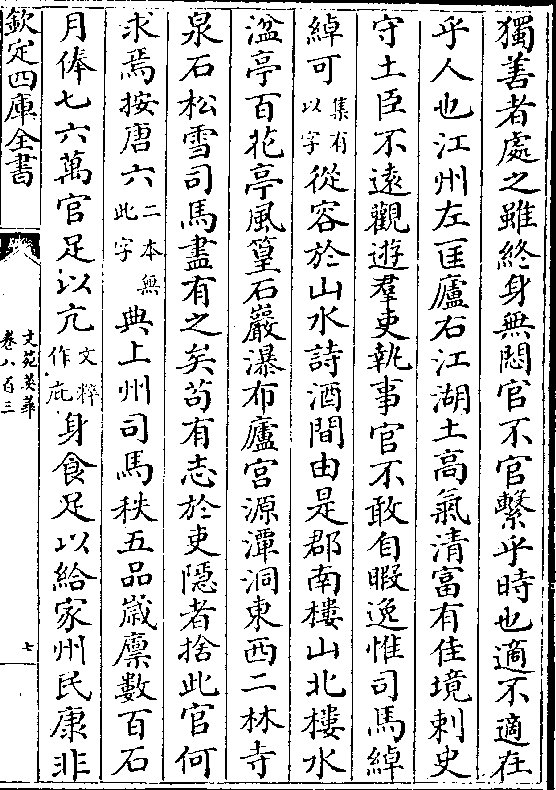 獨善者處之雖終身無悶官不官繫乎時也適不適在
乎人也江州左匡廬右江湖土高氣清富有佳境刺史
守土臣不遠觀遊羣吏執事官不敢自暇逸惟司馬綽
綽可集有以字從容於山水詩酒間由是郡南樓山北樓水
湓亭百花亭風篁石巖瀑布廬宫源潭洞東西二林寺
泉石松雪司馬盡有之矣苟有志於吏隱者捨此官何
求焉按唐六二本無此字典上州司馬秩五品嵗廪數百石
月俸七六萬官足以亢文粹作庇身食足以給家州民康非
欽定四庫全書
文苑英華
卷八百三
七